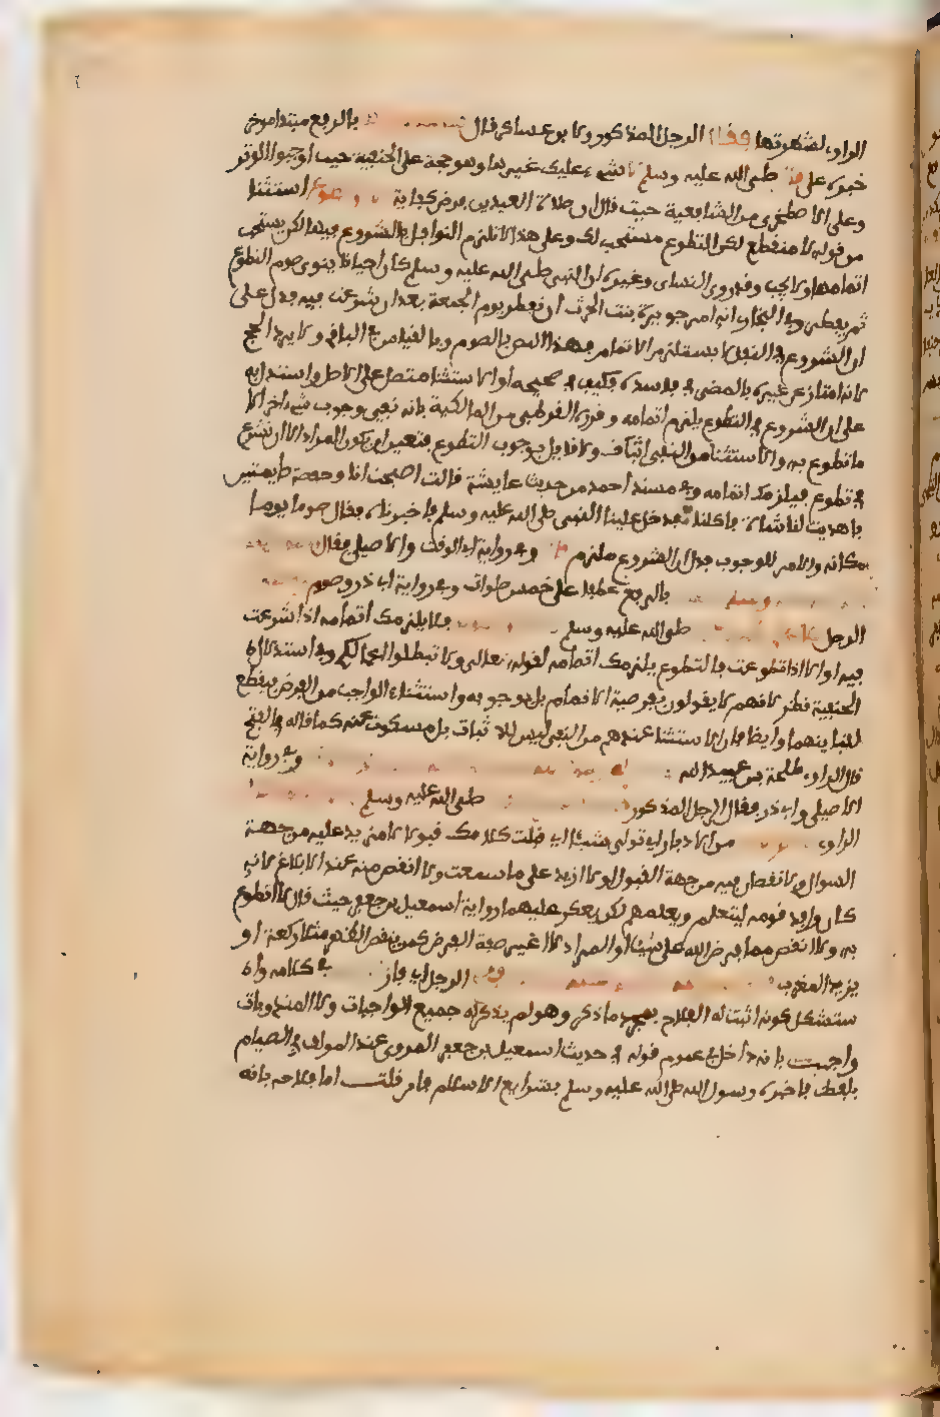 الراوي لشهرتها فقال الرجل المذكور ولابوي عساكر قال بالرفع مبتدا موخر
خبره علي قال صلى الله عليه وسلم لا شيء عليك غيرها وهو حجة على الحنفية حيث اوجبوا الوتر
وعلى الاصطخري من الشافعية حيث قال ان صلاة العيدين فرض كفاية استثنا
من قوله لا منقطع لكن التطوع مستحب لك وعلى هذا لا تلزم النوافل بالشروع فيها لكن يستحب
اتمامها ولا يجب وقد روى النساي وغيره ان النبي صلى الله عليه وسلم كان احيانا ينوي صوم التطوع
ثم يفطر وفي البخاري انه امر جويرية بنت الحرث ان تفطر يوم الجمعة بعد ان شرعت فيه فدل على
ان الشروع في النفل لا يستلزم الاتمام فهذا النص بالصوم وبالقياس في الباقي ولا يرد الحج
لانه امتاز عن غيره بالمضي في فاسده فكيف في صحيحه او الاستثنا متصل على الاصل واستدل به
على ان الشروع في التطوع يلزم اتمامه وقرره القرطبي من المالكية بانه نفي وجوب شيء اخر الا
ما تطوع به والاستثنا من النفي اثبات ولا قايل بوجوب التطوع فتعين ان يكون المراد الا ان تشرع
في تطوع فيلزمك اتمامه وفي مسند احمد من حديث عايشة قالت اصبحت انا وحفصة صايمتين
فاهديت لنا شاة فاكلنا فدخل علينا النبي صلى الله عليه وسلم فاخبرناه فقال صوما يوما
مكانه والامر للوجوب فدل ان الشروع ملزم وفي رواية ابي الوقت والاصيلي فقال
بالرفع عطفا على خمس صلوات وفي رواية ابي ذر وصوم
الرجل صلى الله عليه وسلم فلا يلزمك اتمامه اذا شرعت
فيه او الا اذا تطوعت فالتطوع يلزمك اتمامه لقوله تعالى ولا تبطلوا اعمالكم وفي استدلال
الحنفية نظر لانهم لا يقولون بفرضية الاتمام بل بوجوبه واستثناء الواجب من الفرض منقطع
لتباينهما وايضا فان الاستثنا عندهم من النفي ليس للاثبات بل مسكوت عنه كما قاله في الفتح
قال الراوي طلحة بن عبيد الله وفي رواية
الاصيلي وابي ذر فقال الرجل المذكور صلى الله عليه وسلم
الراوي من الادبار اي تولى اي قبلت كلامك قبولا لا مزيد عليه من جهة
السوال ولا نقصان فيه من جهة القبول او لا ازيد على ما سمعت ولا انقص منه عند الابلاغ لانه
كان وافد قومه ليتعلم ويعلمهم لكن يعكر عليهما رواية اسمعيل بن جعفر حيث قال لا اتطوع
ولا انقص مما فرض الله علي شيئا او المراد لا اغير صفة الفرض كمن ينقص الظهر مثلا ركعة او
يزيد المغرب الرجل اي فاز في كلامه وا
ستشكل كونه اثبت له الفلاح بمجرد ما ذكر وهو لم يذكر له جميع الواجبات ولا المندوبات
واجيب بانه داخل في عموم قوله في حديث اسمعيل بن جعفر المروي عند المولف في الصيام
بلفظ فاخبره رسول الله صلى الله عليه وسلم بشرايع الاسلام فان قلت اما فلاحه بانه